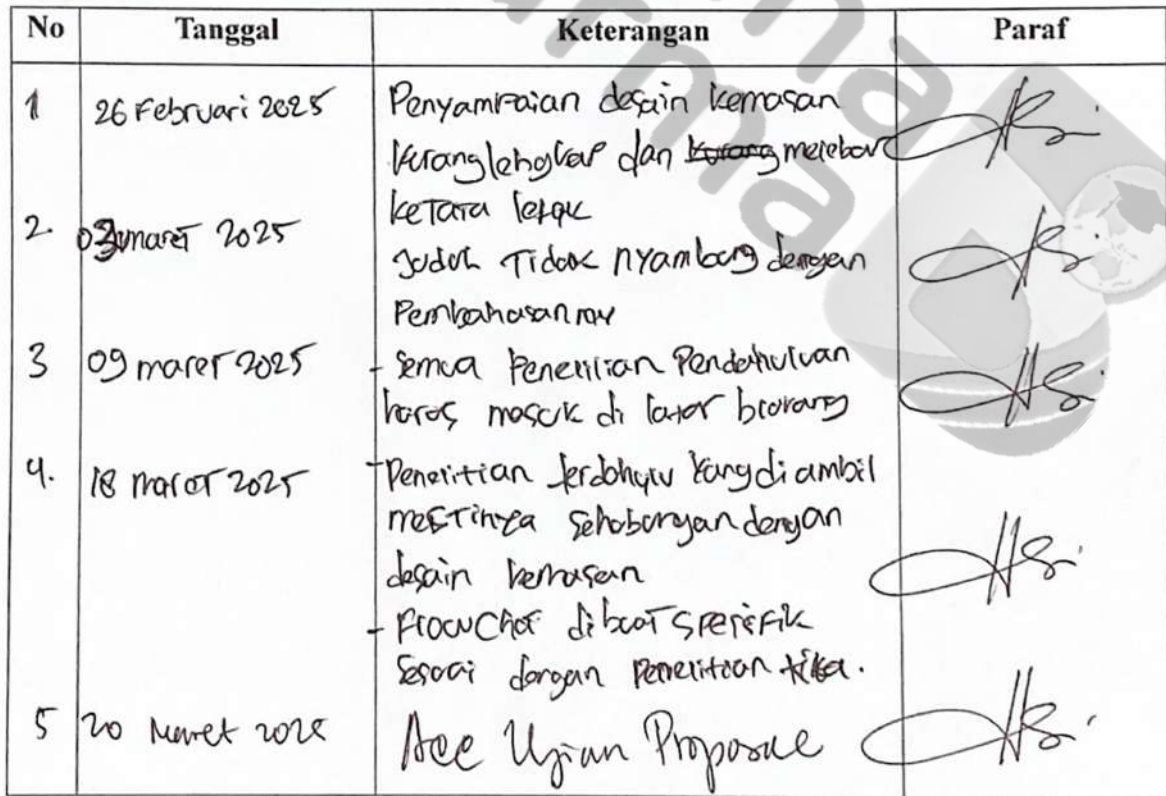 No Tanggal Keterangan Paraf
1 26 Februari 2025 Penyampaian desain kemasan
kurang lengkap dan kurang melebar
ketata letak
2. 03 maret 2025 Judul Tidak nyambung dengan
Pembahasannya
3 09 maret 2025 - Semua Penelitian Pendahuluan
harus masuk di latar
4. 18 maret 2025 - Penelitian terdahulu yang di ambil
mestinya sehubungan dengan
desain kemasan
- Flowchat dibuat spesifik
sesuai dengan penelitian kita.
5 20 Maret 2025 Acc Ujian Proposal